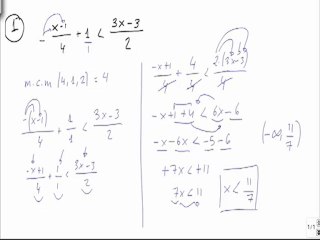 1 - x-1/4 + 1/1 < 3x-3/2
m.c.m (4,1,2) = 4
-(x-1)/4 + 1/1 < 3x-3/2
-x+1/4 + 1/1 < 3x-3/2
-x+1/4 + 4/4 < 2(3x-3)/4
-x+1+4 < 6x-6
-x-6x < -5-6
+7x < +11
7x < 11
x < 11/7
(-∞, 11/7)
1/1